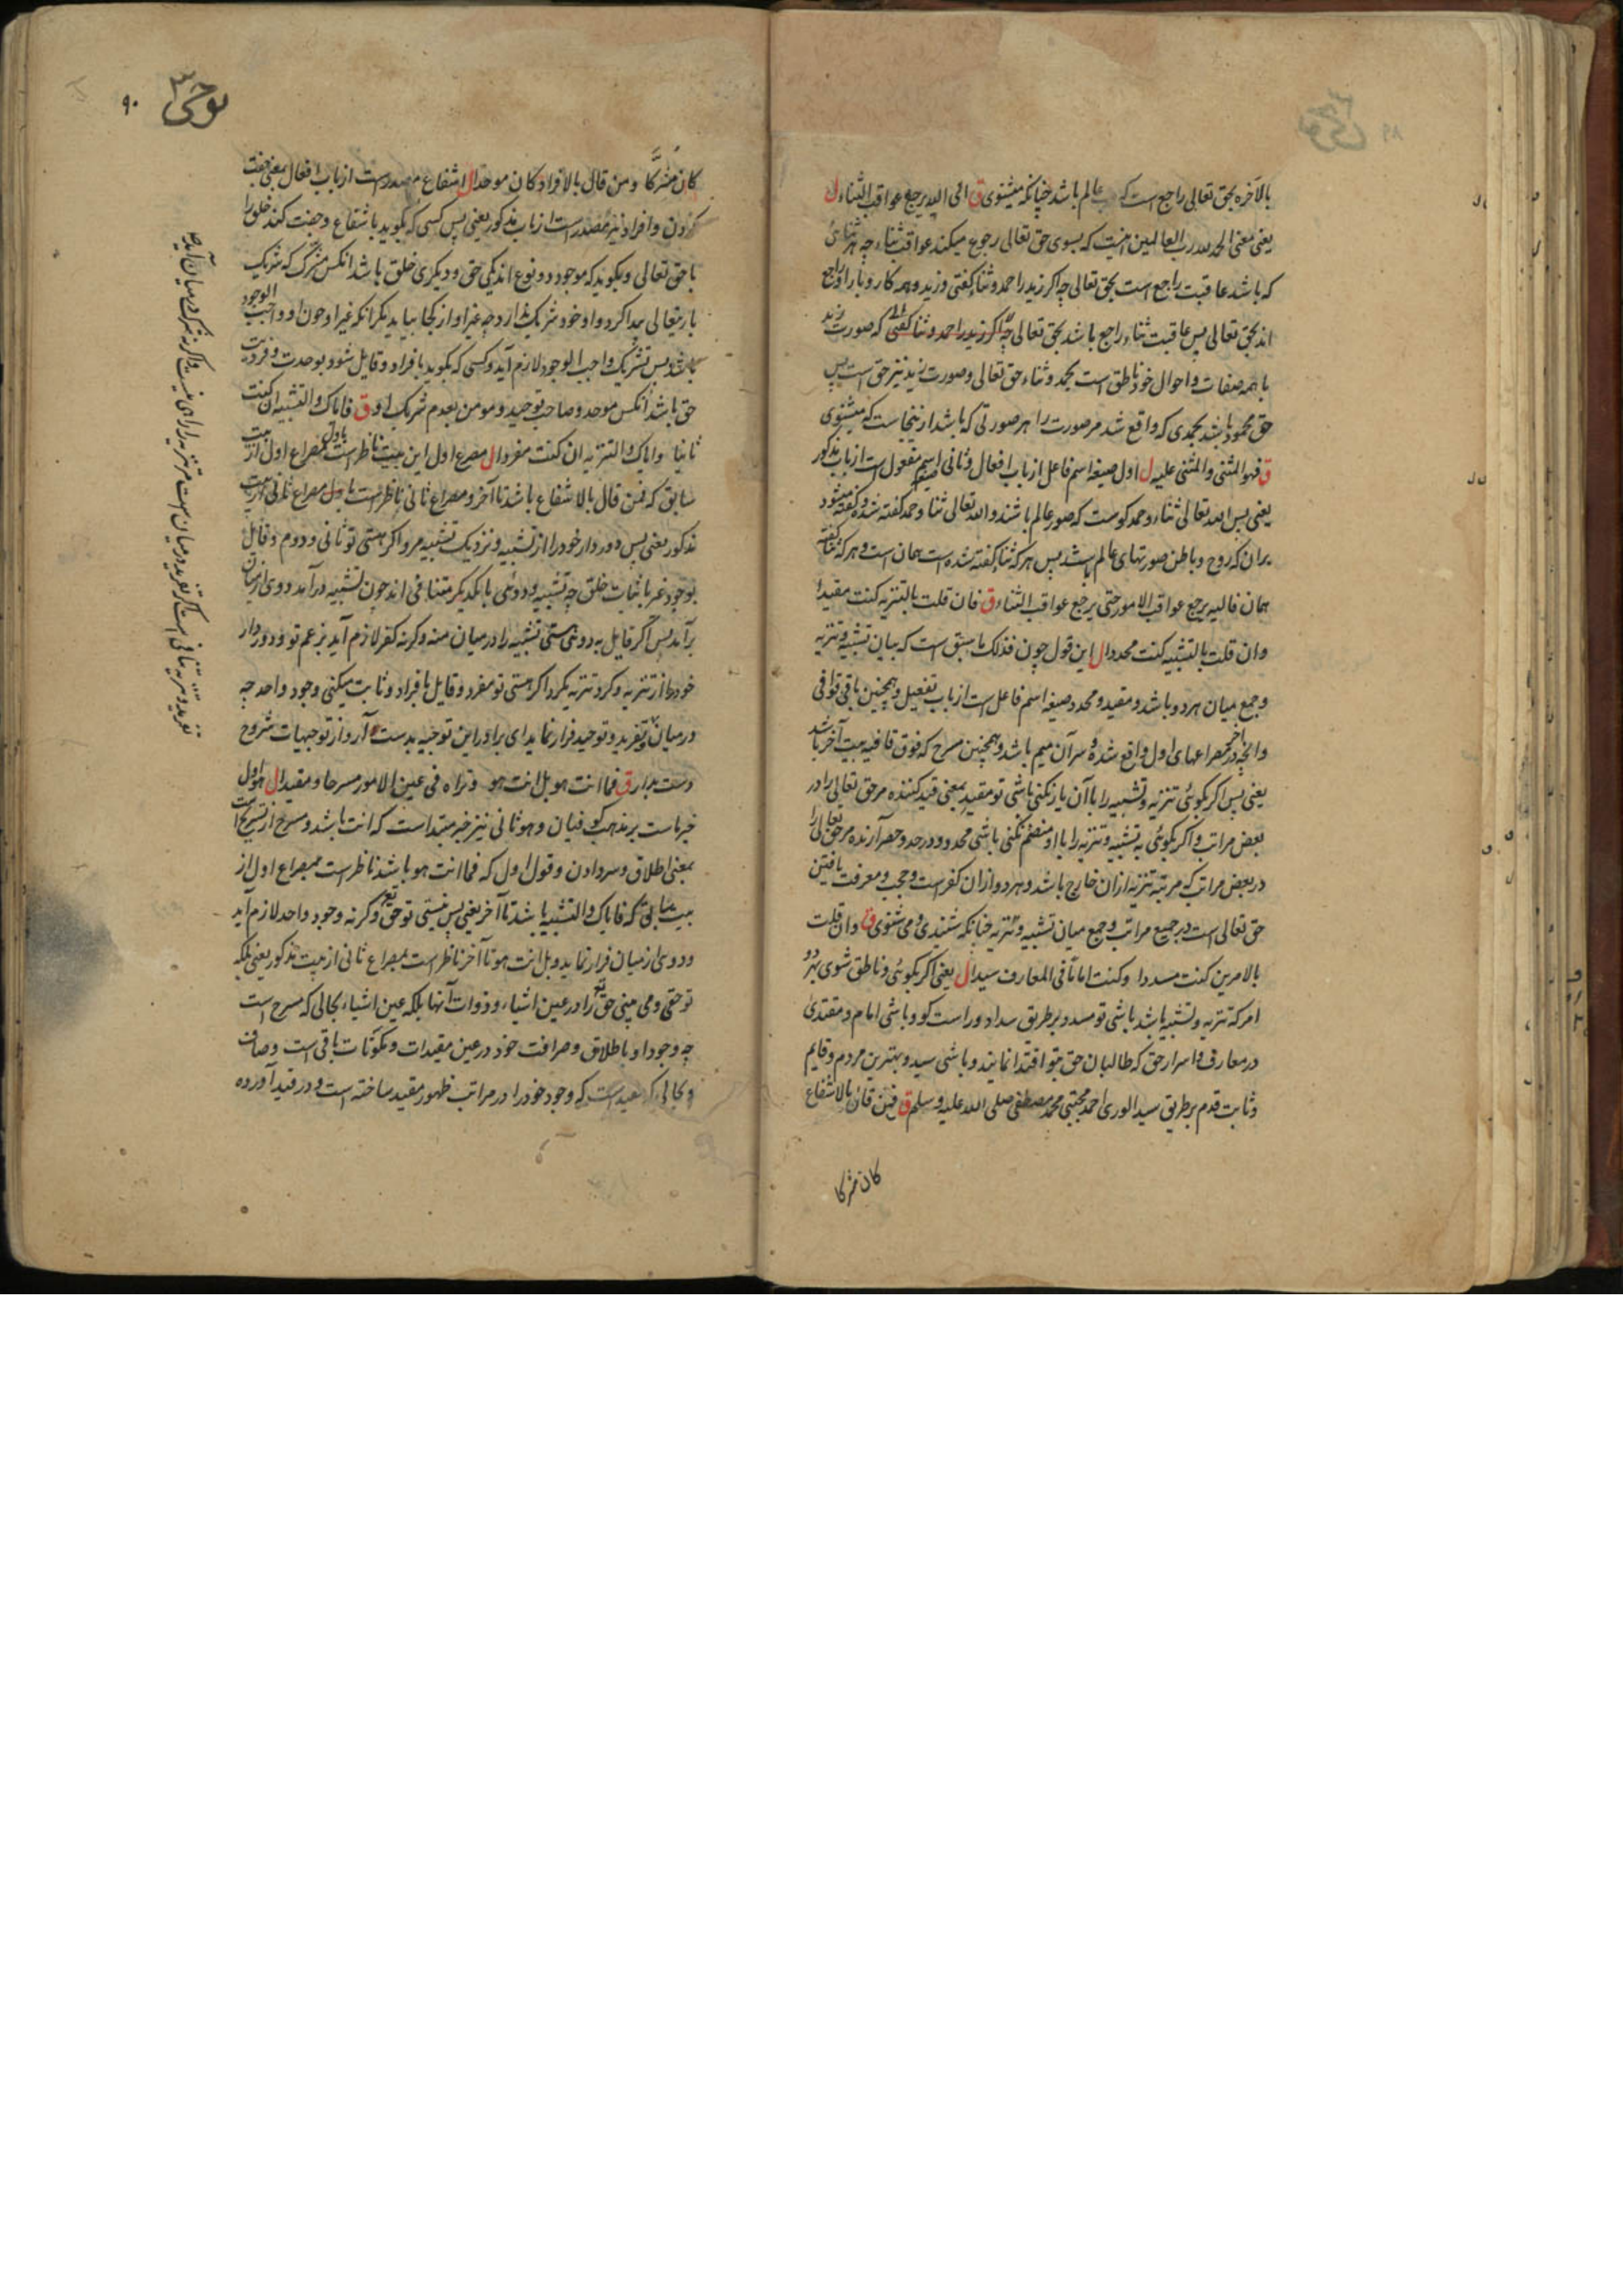 بالآخره بحق تعالی راجع است که عالم باشد چنانکه میشنوی ق الی الله یرجع عواقب الثناء ل
یعنی معنی الحمد لله رب العالمین اینست که بسوی حق تعالی رجوع میکند عواقب ثناء چه هر ثنائ
که باشد عاقبت راجع است بحق تعالی چه اگر زید را حمد و ثناء گفتی و زید و همه کار و بار او راجع
اند بحق تعالی پس عاقبت ثناء راجع باشد بحق تعالی چه اگر زید را حمد و ثنا گفتی که صورت زید
با همه صفات و احوال خود ناطق است بحمد و ثناء حق تعالی و صورت زید نیز حق است پس
حق محمود باشد بحمدی که واقع شد مر صورت را هر صورتی که باشد ازینجاست که میشنوی
ق فهو المثنی والمثنی علیه ل اول صیغه اسم فاعل از باب افعال و ثانی صیغه اسم مفعول است از باب مذکور
یعنی پس الله تعالی ثناء و حمد گوست که صور عالم باشند و الله تعالی ثنا و حمد گفته شده و گفته میشود
بران که روح و باطن صورتهای عالم باشد پس هر که ثنا گفته شده است همان است و هر که ثنا گفته
همان فالیه یرجع عواقب الامور حتی یرجع عواقب الثناء ق فان قلت بالتنزیه کنت مقیدا
وان قلت بالتشبیه کنت محددا ل این قول چون فذلک ما سبق است که بیان تشبیه و تنزیه
و جمع میان هردو باشد و مقید و محدد صیغه اسم فاعل است از باب تفعیل و همچنین باقی قوافی
وانچه در آخر مصراعهای اول واقع شده و سر آن میم باشد و همچنین مسرح که فوق قافیه بیت آخر باشد
یعنی پس اگر بگوئی تنزیه و تشبیه را با آن یار نکنی باشی تو مقید بمعنی قید کننده مر حق تعالی را در
بعض مراتب و اگر بگوئی به تشبیه و تنزیه را با او منضم نکنی باشی محدد و در حد و حصر آرنده مر حق تعالی را
در بعض مراتب که مرتبه تنزیه ازان خارج باشد و هردو ازان کفر است و حجب و معرفت یافتن
حق تعالی است در جمیع مراتب و جمع میان تشبیه و تنزیه چنانکه شنیدی و می شنوی ق وان قلت
بالامرین کنت مسددا وکنت اماما فی المعارف سیدا ل یعنی اگر بگوئی و ناطق شوی بهردو
امر که تنزیه و تشبیه باشد باشی تو مسدد بر طریق سداد و راست گو و باشی امام و مقتدی
در معارف و اسرار حق که طالبان حق بتو اقتدا نمایند و باشی سید و بهترین مردم و قایم
و ثابت قدم بر طریق سید الوری احمد مجتبی محمد مصطفی صلی الله علیه وسلم ق فمن قال بالاشفاع
کان مشرکا
۹۰
کان مشرکا ومن قال بالافراد کان موحدا ل اشفاع مصدر است از باب افعال بمعنی جفت
کردن و افراد نیز مصدر است از باب مذکور یعنی پس کسی که بگوید باشفاع و جفت کند خلق را
با حق تعالی و بگوید که موجود دو نوع اند یکی حق و دیگری خلق باشد انکس مشرک که شریک
باریتعالی پیدا کرد و او خود شریک ندارد چه غیر او از کجا بیاید مگر آنکه غیر او چون او واجب الوجود
باشد پس تشریک واجب الوجود لازم آید و کسی که بگوید بافراد و قایل شود بوحدت و فردیت
حق باشد انکس موحد و صاحب توحید و مومن بعدم شریک او ق فایاک والتشبیه ان کنت
ثانیا وایاک والتنزیه ان کنت مفردا ل مصرع اول این بیت ناظر است باول مصراع اول از بیت
سابق که فمن قال بالاشفاع باشد تا آخر و مصراع ثانی ناظر است باول مصراع ثانی از بیت
مذکور یعنی پس دور دار خود را از تشبیه و نزدیک تشبیه مرو اگر هستی تو ثانی و دوم و قایل
بوجود غیر باثبات خلق چه تشبیه و دوئی بایکدیگر متنافی اند چون تشبیه درآمد دوی از میان
برآمد پس اگر قایل بدوئی هستی تشبیه را در میان منه وگرنه کفر لازم آید بزعم تو و دور دار
خود را از تنزیه و گرد تنزیه مگرد اگر هستی تو مفرد و قایل بافراد و ثابت میکنی وجود واحد چه
در میان تفرید و توحید فرار نماید ای برادر این توجیه بدست آر و از توجیهات شروح
دست بدار ق فما انت هو بل انت هو وتراه فی عین الامور مسرحا ومقیدا ل هو اول
خبر ماست بر مذهب کوفیان و هو ثانی نیز خبر مبتداست که انت باشد و مسرح از تسریح است
بمعنی اطلاق و سردادن و قول اول که فما انت هو باشد ناظر است بمصراع اول از
بیت سابق که فایاک والتشبیه باشد تا آخر یعنی پس نیستی تو حق تعالی وگرنه وجود واحد لازم آید
و دوئی از میان فرار نماید و بل انت هو تا آخر ناظر است بمصراع ثانی از بیت مذکور یعنی بلکه
تو حقی و می بینی حق تعالی را در عین اشیاء و ذوات آنها بلکه عین اشیاء بحالی که مسرح است
چه وجود او باطلاق و صرافت خود در عین مقیدات و مکونات باقی است و صاف
و بحالی که مقید است که وجود خود را در مراتب ظهور مقید ساخته است و در قید آورده